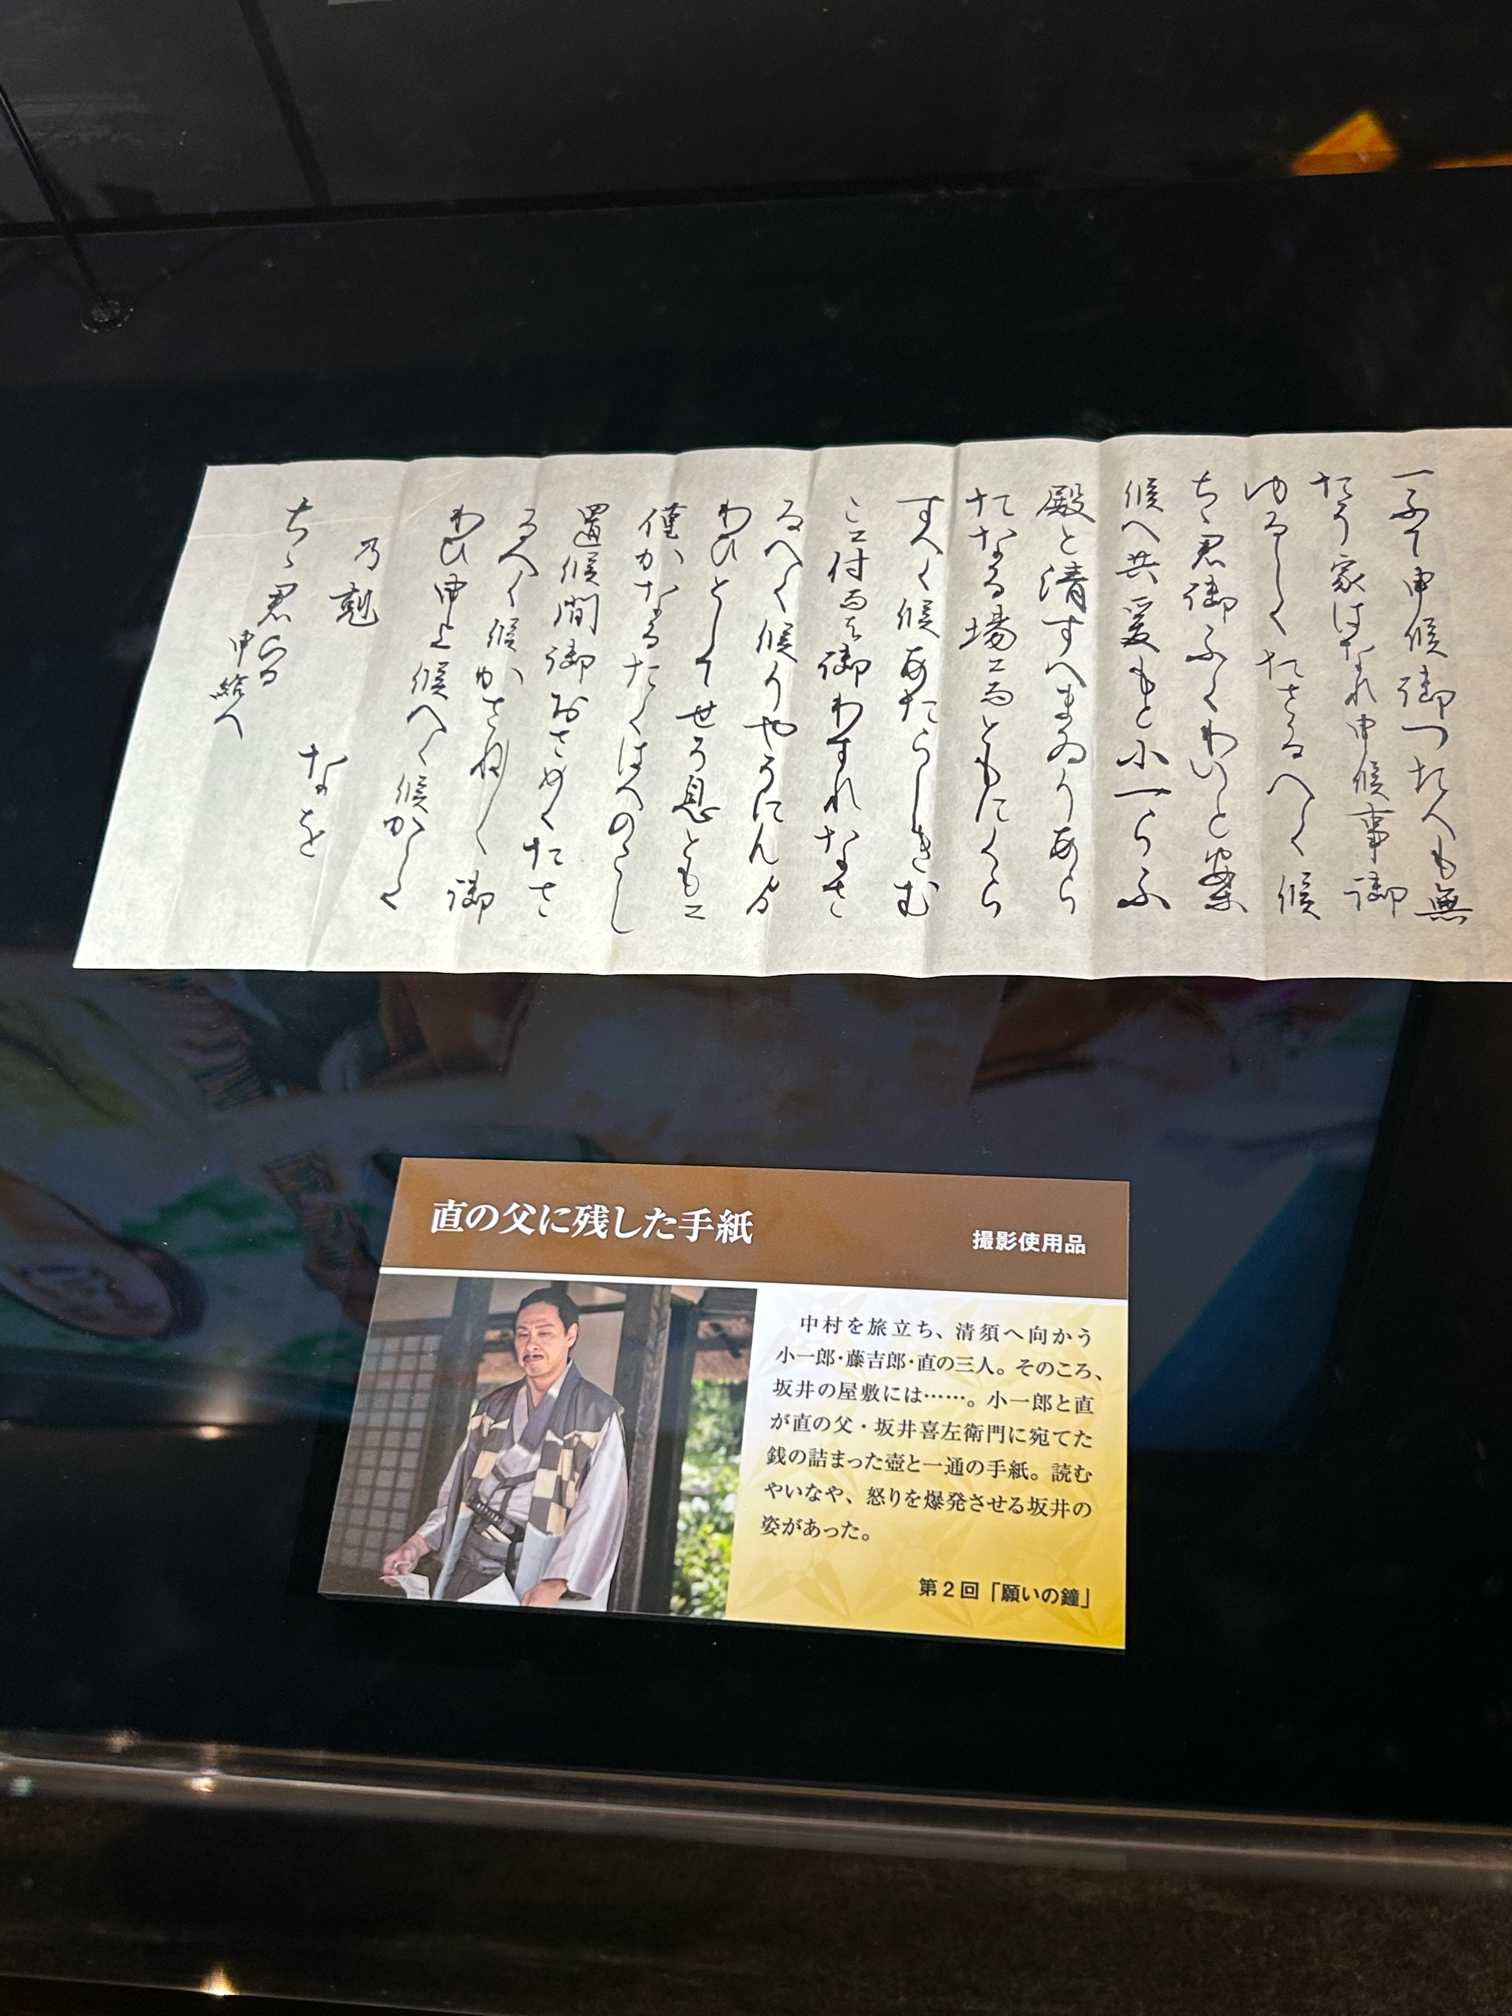 一ふて申候御つたへも無
たう家はなれ申候事御
ゆるしくたさるへく候
ちゝ君御ふくわいと案
候へ共爰もと小一らふ
殿と清すへまゐりあら
たなる場ニ而ともにくら
すへく候あたらしきむ
こニ付而ハ御わすれなさ
るへく候
わひとして
僅かなるたくはへのこし
置候間御おさめくたさ
るへく候かさね〳〵御
わひ申上候へく候かしく
乃剋
なを
ちゝ君
申給へ
直の父に残した手紙
撮影使用品
中村を旅立ち、清須へ向かう
小一郎・藤吉郎・直の三人。そのころ、
坂井の屋敷には……。小一郎と直
が直の父・坂井喜左衛門に宛てた
銭の詰まった壺と一通の手紙。読む
やいなや、怒りを爆発させる坂井の
姿があった。
第2回「願いの鐘」